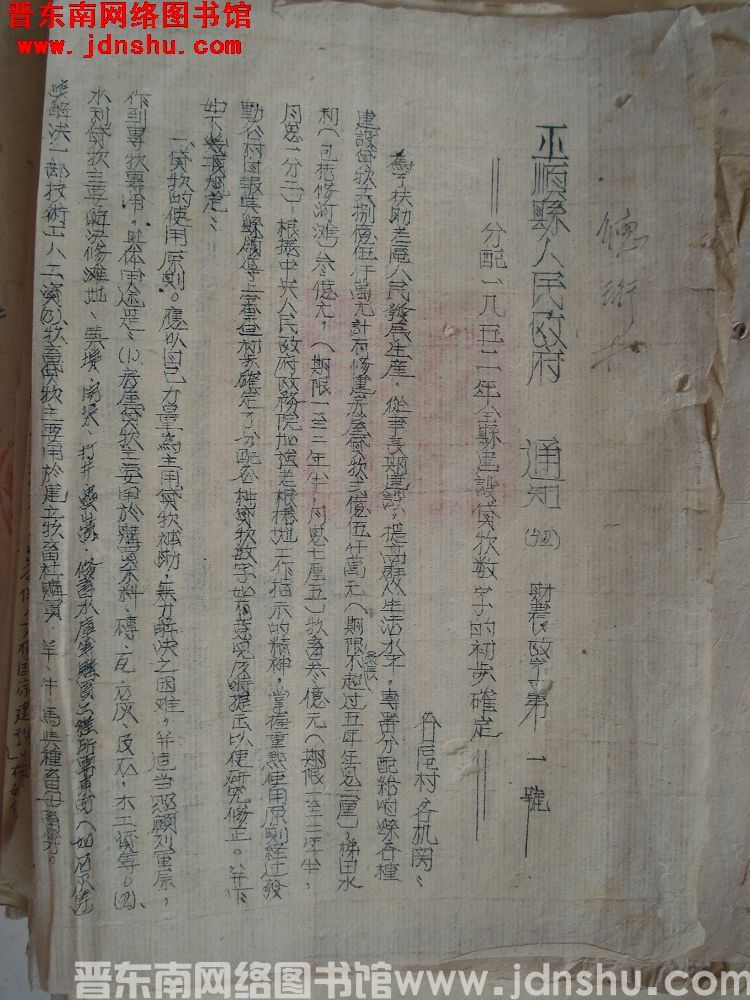 晋东南网络图书馆
www.jdnshu.com
平順縣人民政府 通知 (52) 財農政字第一號
——分配一九五二年全縣建設貸款数字的初步確定——
各區村各机関：
為了扶助老區人民發展生産，從事長期建設，提高群众生活水平，專署分配給咱縣各種
建設貸款夫捌億伍仟萬元計有修建房屋貸款弍億伍仟萬元（期限不超过五年年息二厘）梯田水
利（包括修河灘）叁億元，（期限一至二年半，月息七厘五）牧畜叁億元（期限一至二年半，
月息一分二）根据中央人民政府政務院加強老根據地工作指示的精神，掌握重點使用原則経过發
動各村囬報與縣領導上審查初步確定了分配各社貸款数字如有意見及時提出以便研究修正。並作
如下幾項規定：
一、貸款的使用原則。應以自己力量為主用貸款補助，無力解決之困难，并适当照顧烈軍属，
作到專款專用，具体用途是：(1)房屋貸款主要用於購買木料、磚、瓦、石灰、及石，木工資等。(2)、
水利貸款主要解決修灘地、築壩、開渠、打井
解決一部技術工人工資(3)牧畜貸款主要用於建立牧畜社購買，羊、牛、馬等種畜母畜等。
晋东南网络图书馆 www.jdnshu.com